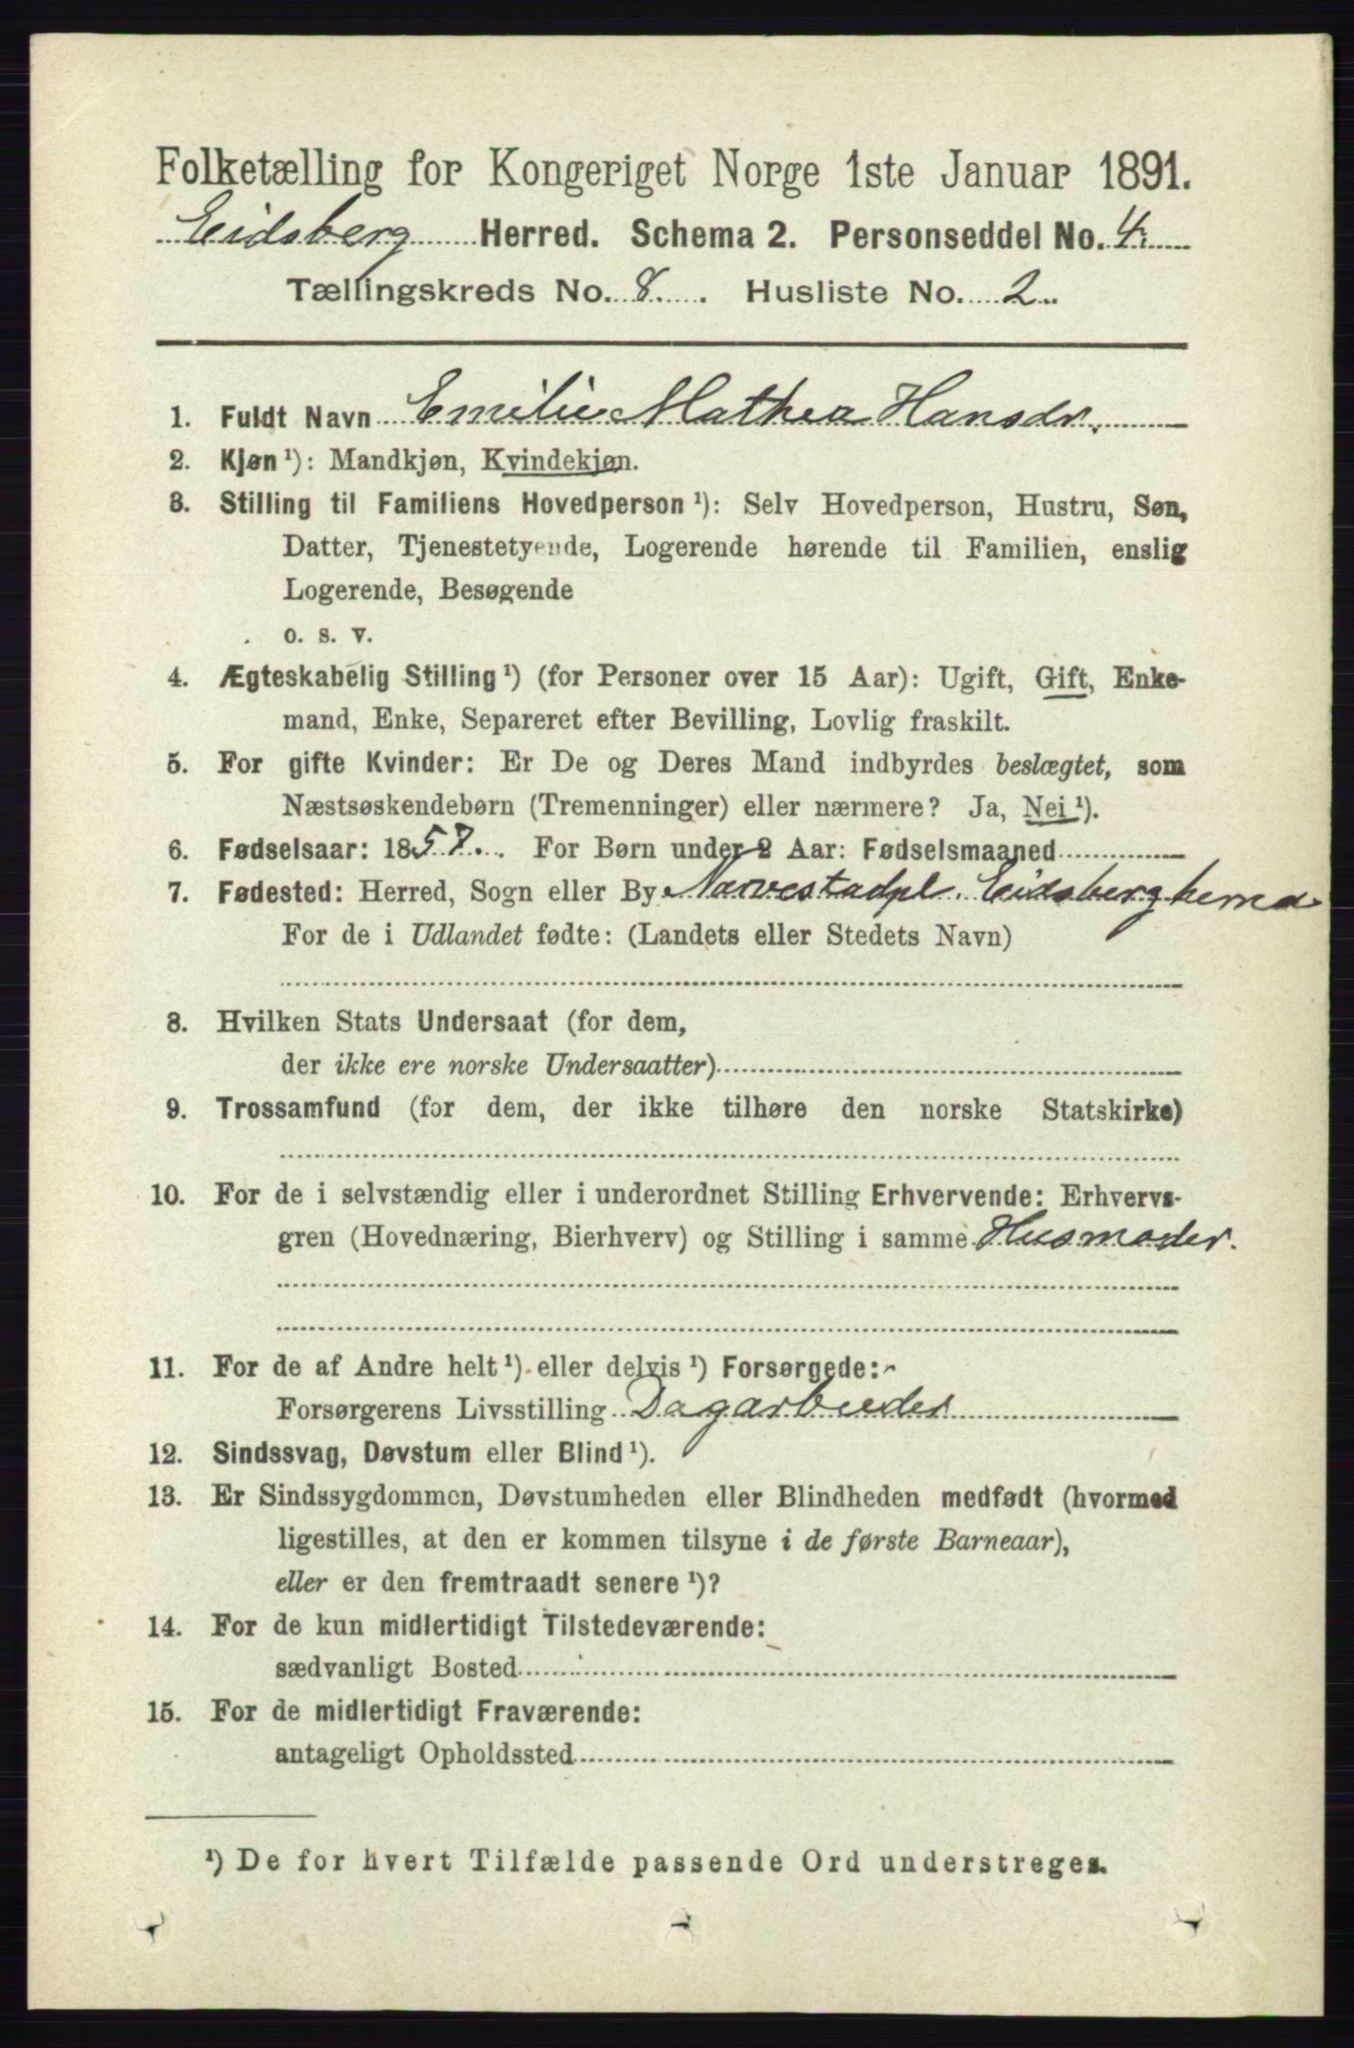 Folketælling for Kongeriget Norge 1ste Januar 1891.
Eidsberg Herred. Schema 2. Personseddel No. 4.
Tællingskreds No. 8. Husliste No. 2.
1. Fuldt Navn Emilie Mathea Hansdr.
2. Kjøn ¹): Mandkjøn, Kvindekjøn.
3. Stilling til Familiens Hovedperson ¹): Selv Hovedperson, Hustru, Søn,
Datter, Tjenestetyende, Logerende hørende til Familien, enslig
Logerende, Besøgende
o. s. v.
4. Ægteskabelig Stilling ¹) (for Personer over 15 Aar): Ugift, Gift, Enke-
mand, Enke, Separeret efter Bevilling, Lovlig fraskilt.
5. For gifte Kvinder: Er De og Deres Mand indbyrdes beslægtet, som
Næstsøskendebørn (Tremenninger) eller nærmere? Ja, Nei ¹).
6. Fødselsaar: 1857. For Børn under 2 Aar: Fødselsmaaned
7. Fødested: Herred, Sogn eller By Narvestadpl. Eidsberg herred
For de i Udlandet fødte: (Landets eller Stedets Navn)
8. Hvilken Stats Undersaat (for dem,
der ikke ere norske Undersaatter)
9. Trossamfund (for dem, der ikke tilhøre den norske Statskirke)
10. For de i selvstændig eller i underordnet Stilling Erhvervende: Erhvervs-
gren (Hovednæring, Bierhverv) og Stilling i samme Husmoder.
11. For de af Andre helt ¹) eller delvis ¹) Forsørgede:
Forsørgerens Livsstilling Dagarbeider
12. Sindssvag, Døvstum eller Blind ¹).
13. Er Sindssygdommen, Døvstumheden eller Blindheden medfødt (hvormed
ligestilles, at den er kommen tilsyne i de første Barneaar),
eller er den fremtraadt senere ¹)?
14. For de kun midlertidigt Tilstedeværende:
sædvanligt Bosted
15. For de midlertidigt Fraværende:
antageligt Opholdssted
¹) De for hvert Tilfælde passende Ord understreges.